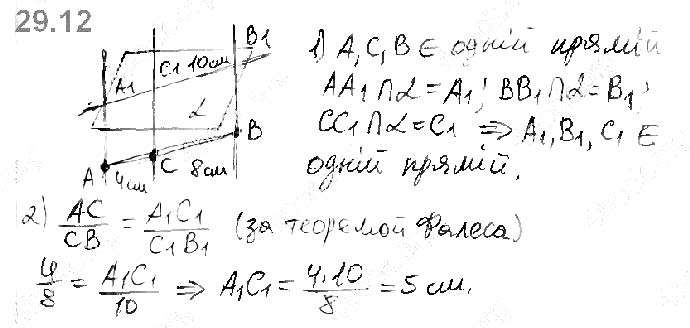 29.12
B1
C1 10см
A1
α
B
A 4см C 8см
1) A, C, B ∈ одній прямій
AA1 ∩ α = A1; BB1 ∩ α = B1;
CC1 ∩ α = C1 ⇒ A1, B1, C1 ∈
одній прямій.
2) AC/CB = A1C1/C1B1 (за теоремой Фалеса)
4/8 = A1C1/10 ⇒ A1C1 = 4·10/8 = 5 см.